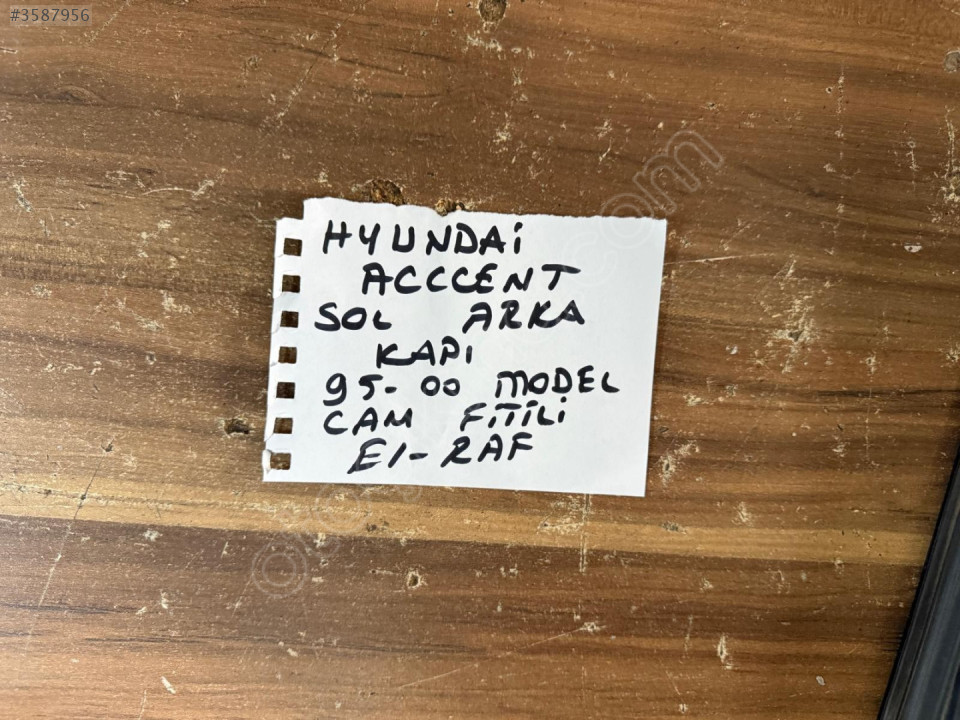 #3587956
HYUNDAİ
ACCCENT
SOL ARKA
KAPI
95-00 MODEL
CAM FİTİLİ
E1-RAF